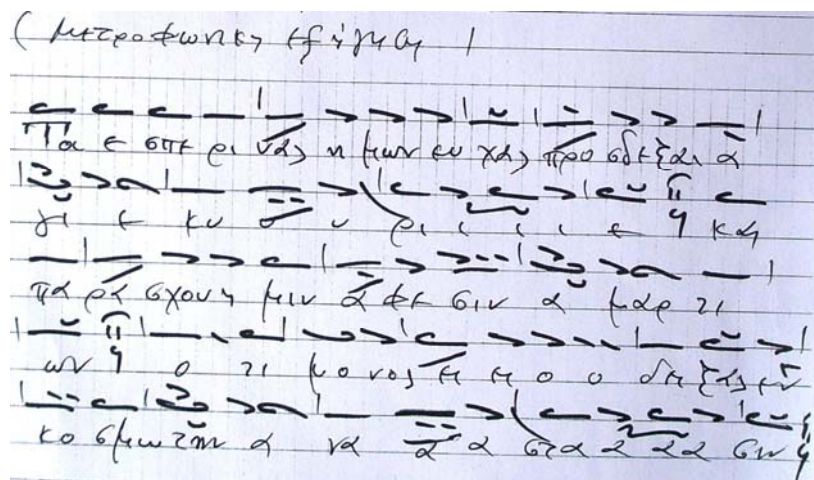 ( Μετροφωνικη εξήγηση )
Τα ε σπε ρι νας η μων ευ χας προ σδε ξαι α
γι ε κυ υ υ ρι ι ι ι ε και
πα ρα σχου η μιν α φε σιν α μαρ τι
ων ο τι μο νος ει ει ο ο δει ξας εν
κο σμω την α να α α στα α α α σιν